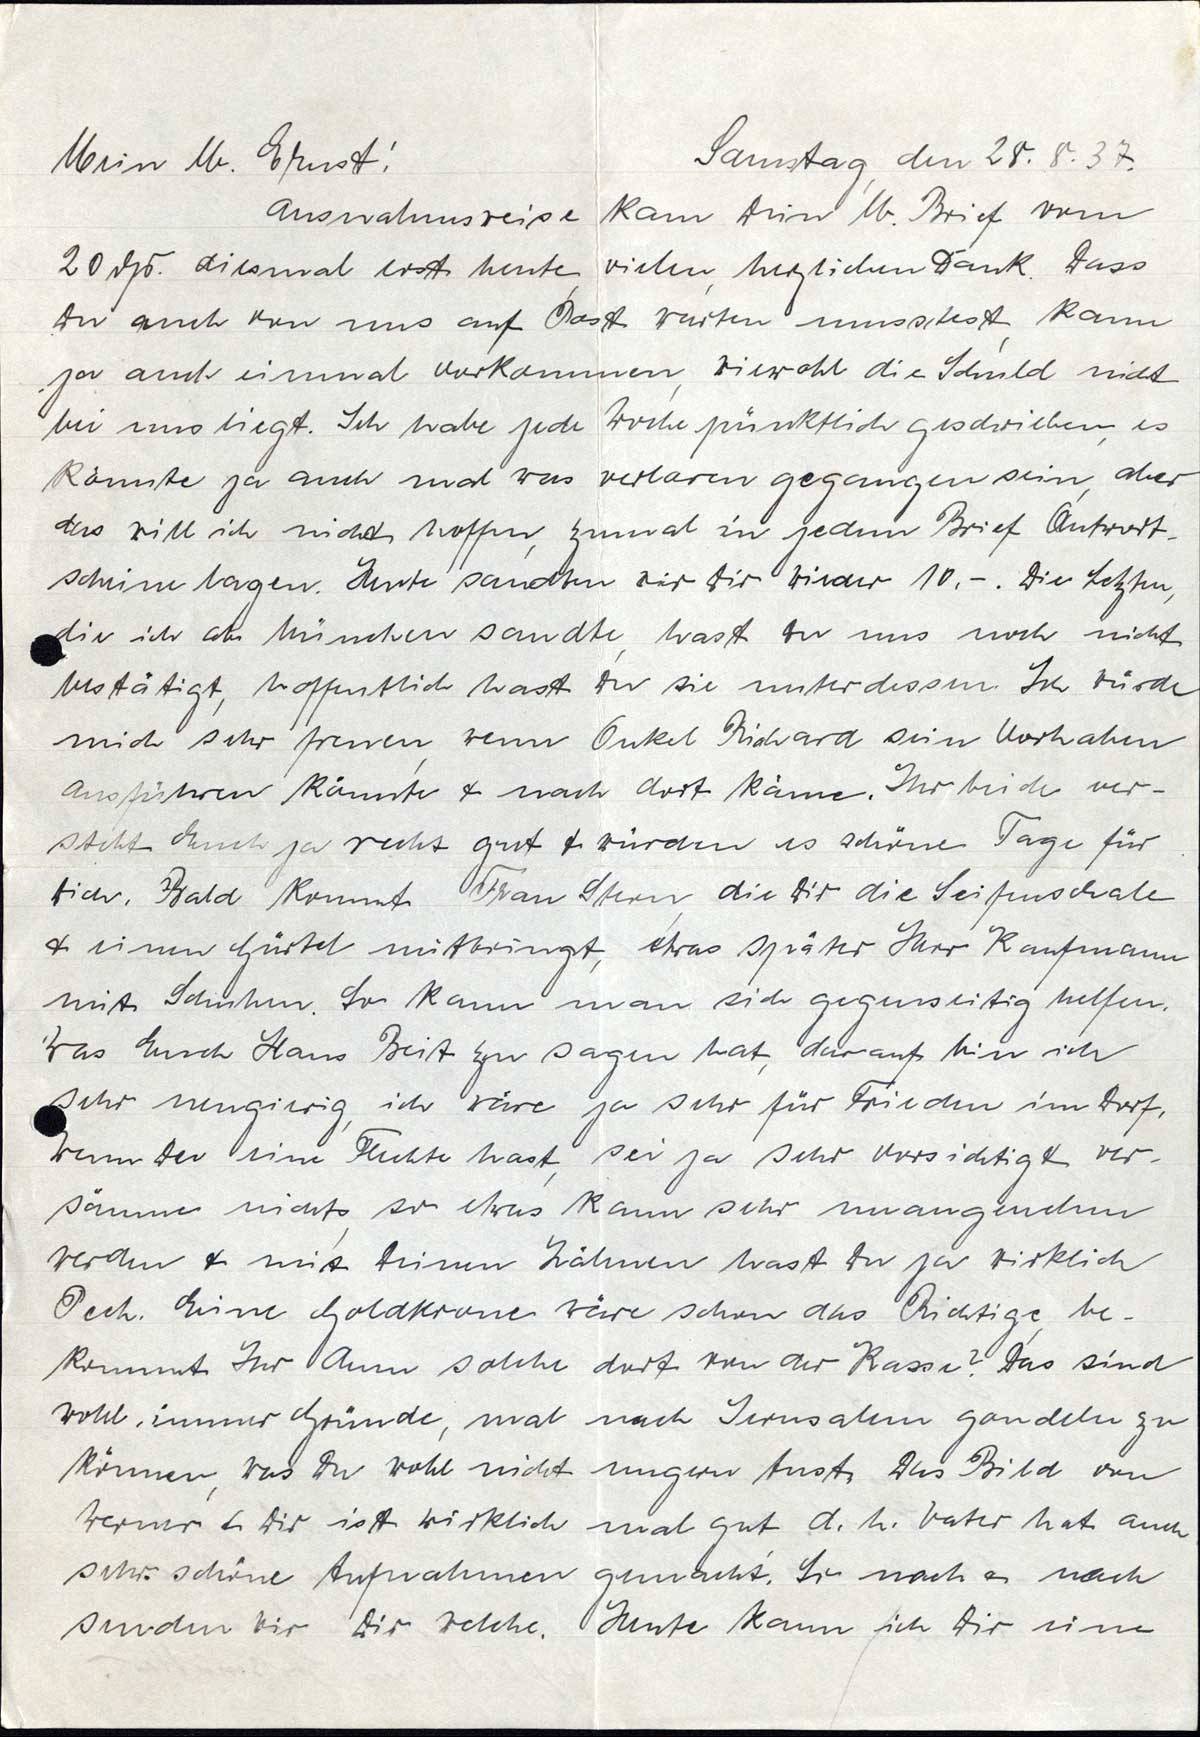 Mein lb. Ernst! Samstag, den 28. 8. 37.
Ausnahmsweise kam Dein lb. Brief vom
20 ds. diesmal erst heute, vielen, herzlichen Dank. Dass
Du auch von uns auf Post warten musstest, kann
ja auch einmal vorkommen, wiewohl die Schuld nicht
bei uns liegt. Ich habe jede Woche pünktlich geschrieben, es
könnte ja auch mal was verloren gegangen sein, aber
das will ich nicht hoffen, zumal in jedem Brief Antwort-
scheine lagen. Heute sandten wir Dir wieder 10.-. Die Letzten,
die ich ab München sandte, hast Du uns noch nicht
bestätigt, hoffentlich hast Du sie unterdessen. Ich würde
mich sehr freuen, wenn Onkel Richard sein Vorhaben
ausführen könnte & nach dort käme. Ihr beide ver-
steht Euch ja recht gut & würden es schöne Tage für
Dich. Bald kommt Frau Stern, die Dir die Seifenschale
& einen Gürtel mitbringt, etwas später Herr Kaufmann
mit Schuhen. So kann man sich gegenseitig helfen.
Was Euch Hans Beit zu sagen hat, darauf bin ich
sehr neugierig, ich wäre ja sehr für Frieden im Dorf.
Wenn Du eine Flechte hast, sei ja sehr vorsichtig & ver-
säume nichts, so etwas kann sehr unangenehm
werden & mit Deinen Zähnen hast Du ja wirklich
Pech. Eine Goldkrone wäre schon das Richtige, be-
kommt Ihr denn solche dort von der Kasse? Das sind
wohl immer Gründe, mal nach Jerusalem gondeln zu
können, was Du wohl nicht ungern tust. Das Bild von
Werner & Dir ist wirklich mal gut d. h. Vater hat auch
sehr schöne Aufnahmen gemacht. So nach & nach
senden wir Dir welche. Heute kann ich Dir eine